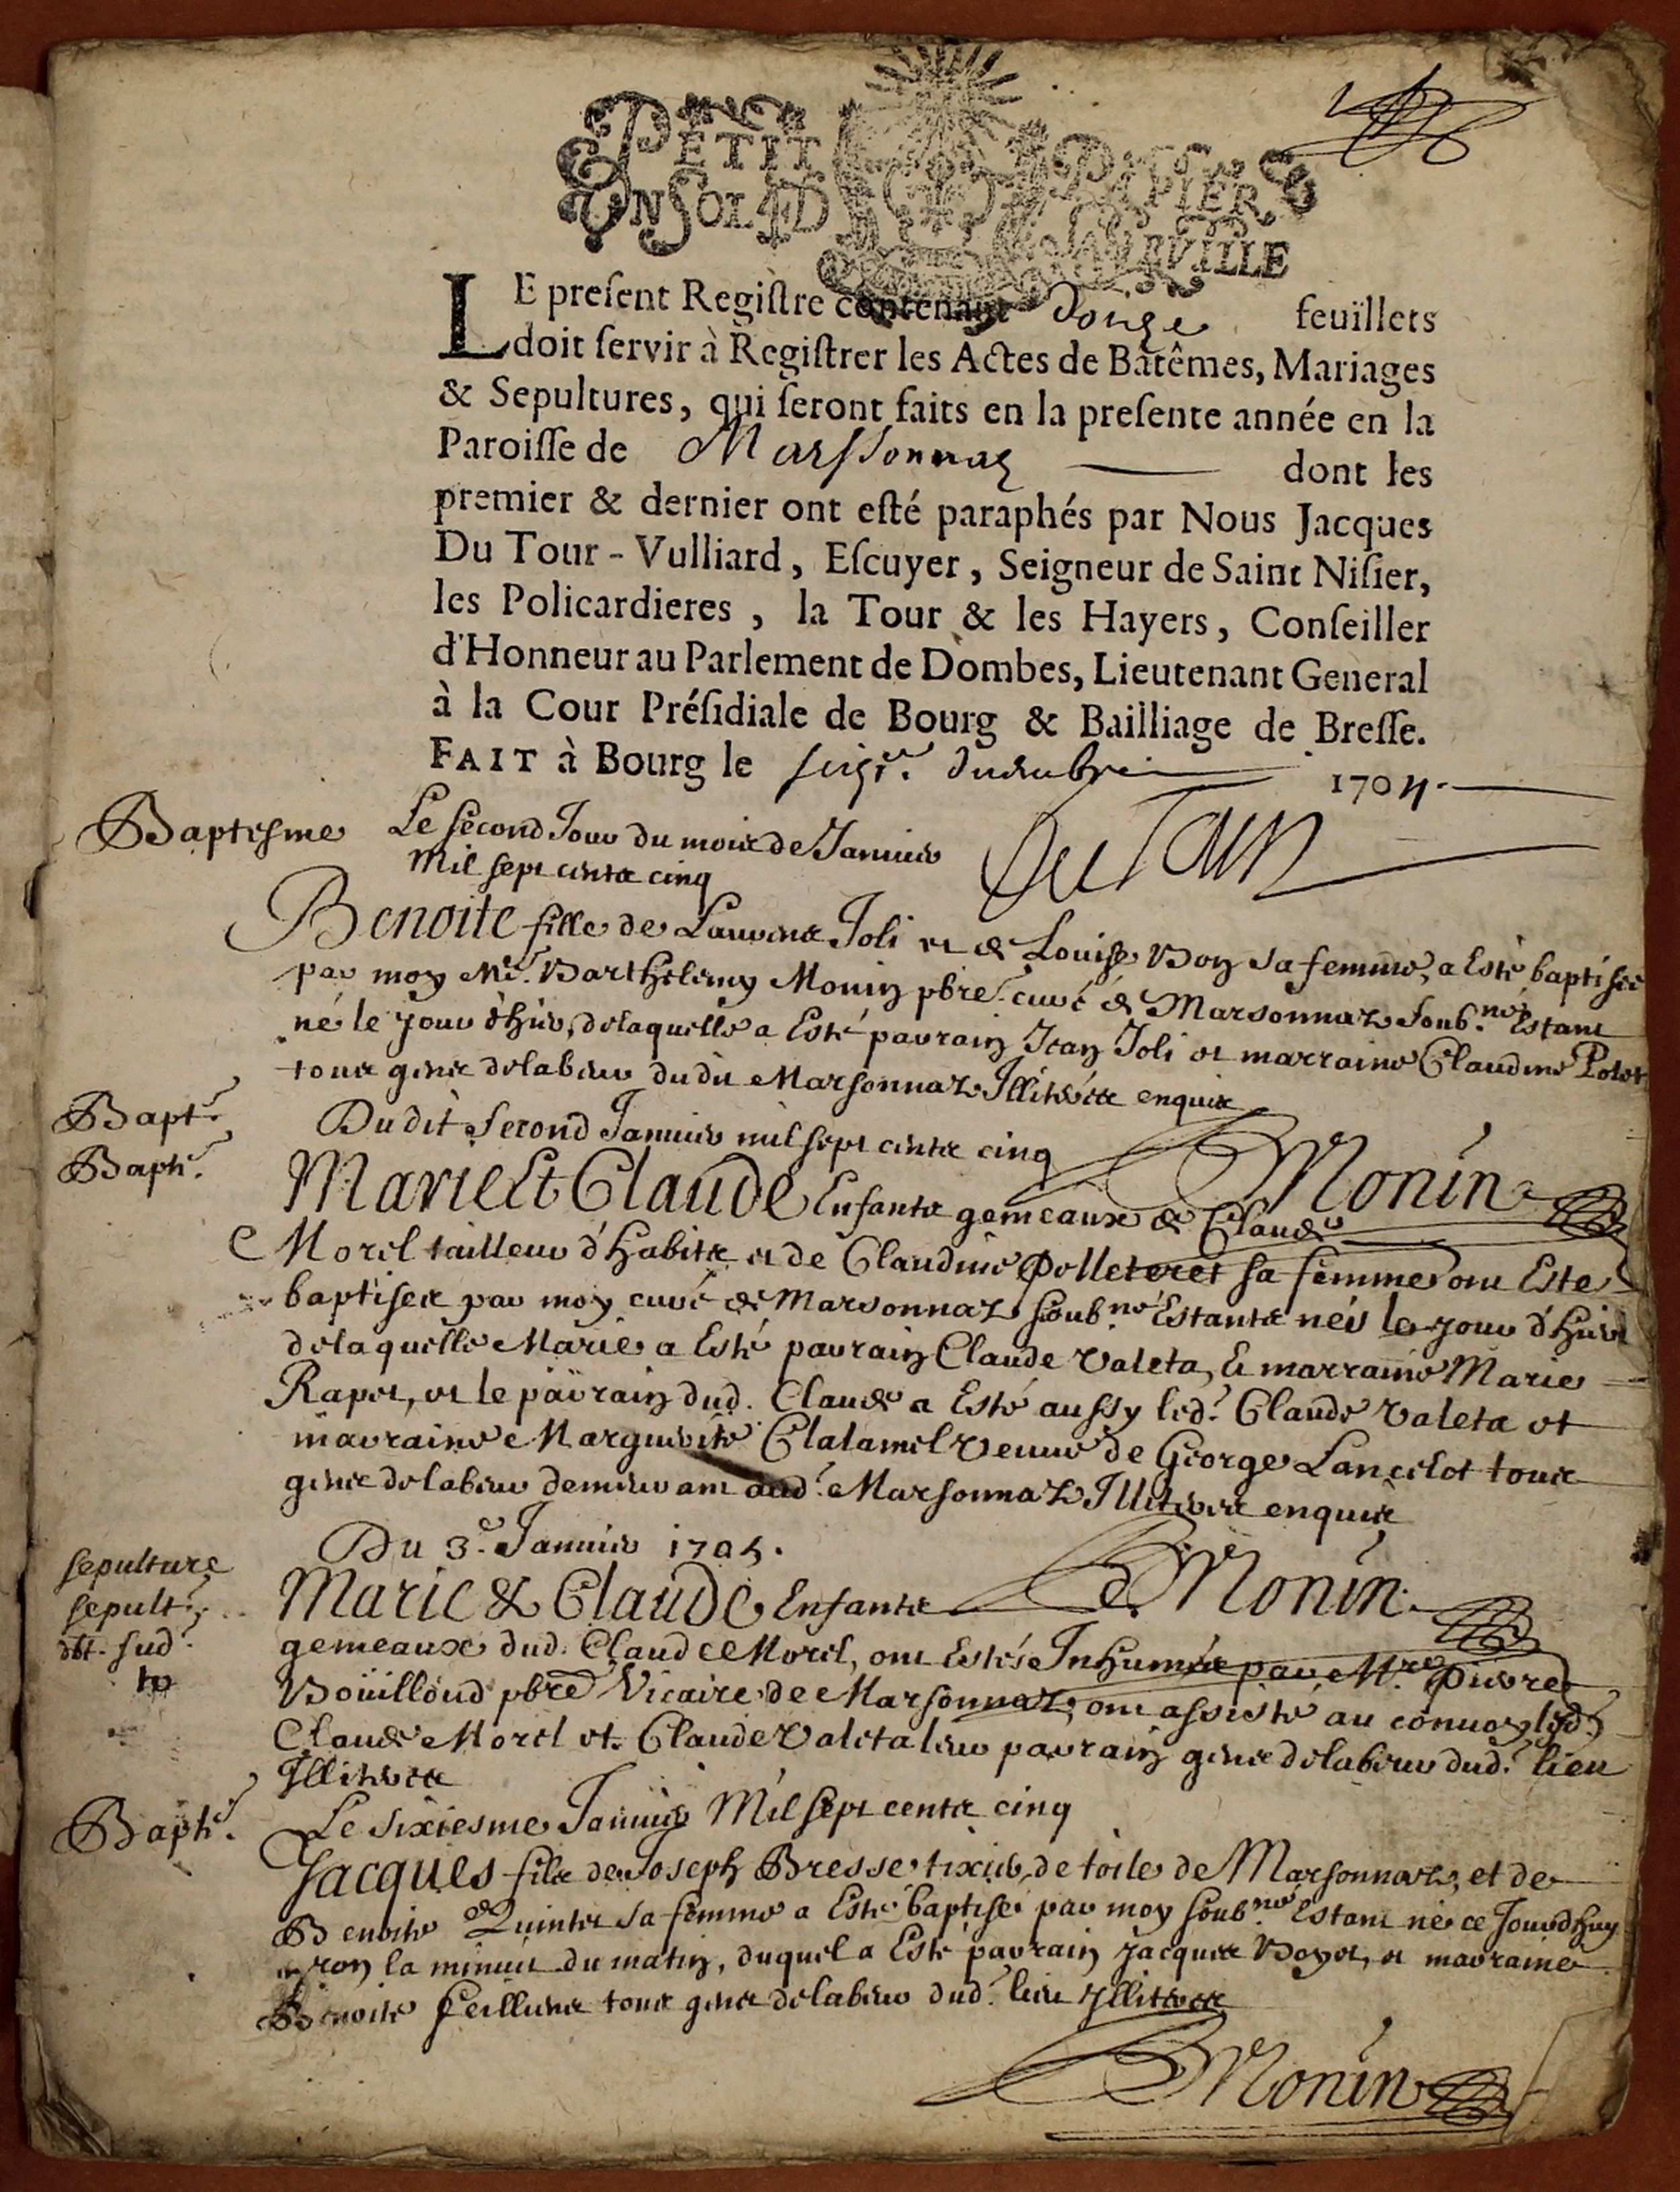 PETIT PAPIER
UN SOL 4 D LA FEVILLE
LE preſent Regiſtre contenant douze feuïllets
doit ſervir à Regiſtrer les Actes de Batêmes, Mariages
& Sepultures, qui ſeront faits en la preſente année en la
Paroiſſe de Marssonnaz dont les
premier & dernier ont eſté paraphés par Nous Jacques
Du Tour - Vulliard, Eſcuyer, Seigneur de Saint Niſier,
les Policardieres, la Tour & les Hayers, Conſeiller
d'Honneur au Parlement de Dombes, Lieutenant General
à la Cour Préſidiale de Bourg & Bailliage de Breſſe.
FAIT à Bourg le 1704
Baptesme Le second Jour du mois de Januier
Mil sept cents cinq
DuTour
Benoite fille de Laurens Joli et de Louise Bon sa femme, a Esté baptisée
par moy Mre. Barthelemy Monin pbre. curé de Marsonnaz soub.né Estant
né le jour d'hier, de laquelle a Esté parrain Jean Joli et marraine Claudine Polet
tous gens de labeur dudit Marsonnaz Illiterés enquis
Bapt. Du dit second Januier mil sept cents cinq
Monin
Bapt. Marie Et Claude Enfants gemeaux de Claude
Morel tailleur d'habits et de Claudine Polleteret sa femme ont Esté
baptisés par moy curé de Marsonnaz soub.né Estants nés le jour d'hier
de laquelle Marie a Esté parrain Claude Valeta, & marraine Marie
Rapet, et le parrain dud. Claude a Esté aussy led. Claude Valeta et
marraine Marguerite Clalamel veuue de George Lancelot tous
gens de labeur demeurant aud. Marsonnaz Illiterés enquis
Du 3e. Januier 1705.
Monin
sepulture Marie & Claude Enfants
sepult. gemeaux dud. Claude Morel, ont Estés Inhumés par Mre. Pierre
dbt. sud. Boüilloud pbre Vicaire de Marsonnaz, ont assisté au conuoy led.
Claude Morel et Claude Valeta leur parrain gens de labeur dud. lieu
Illiterés
Bapt. Le sixiesme Januier Mil sept cents cinq
Jacques fils de Joseph Bresse tixier de toile de Marsonnaz, et de
Benoite Quinter sa femme a Esté baptisé par moy soub.né Estant né ce Jourdhuy
enron la minuit du matin, duquel a Esté parrain Jacques Boyer, et marraine
Benoite Feillens tous gens de labeur dud. lieu Illiterés
Monin